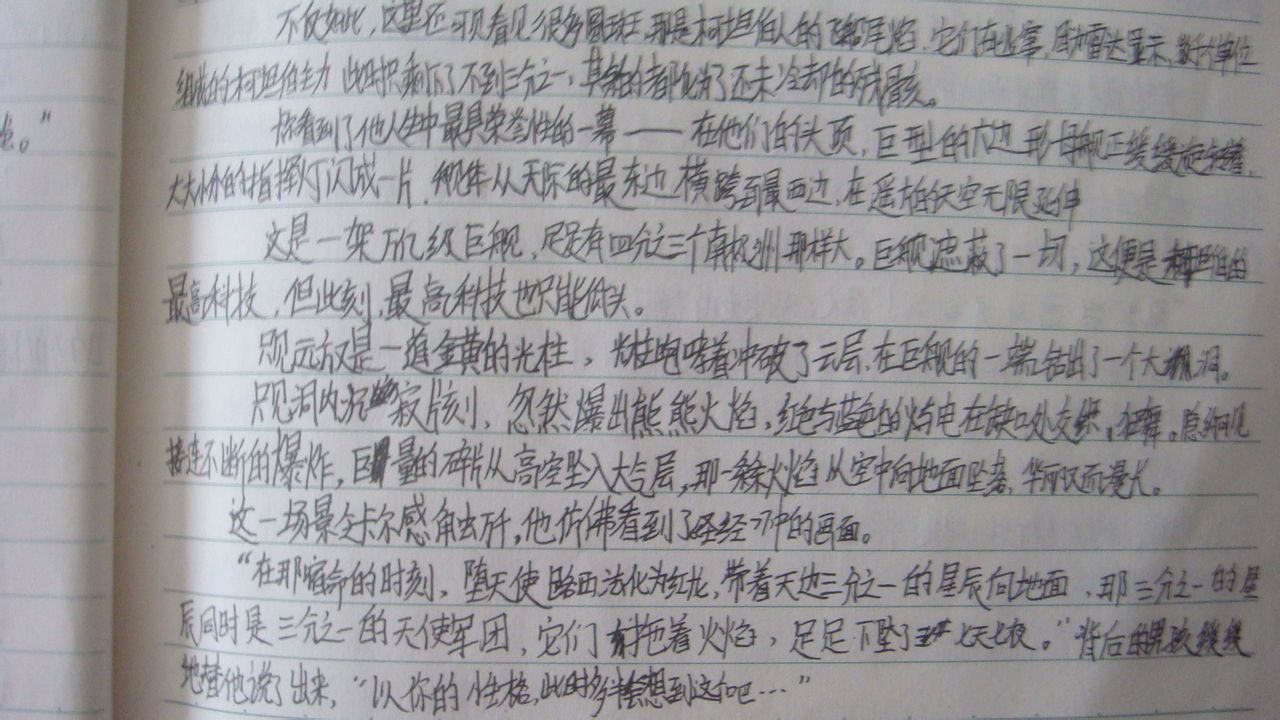 不仅如此，这里还可见看见很多黑斑，那是柯坦伯人的飞船尾焰，它们在 雷达显示，数千个单位
组成的柯坦伯主力 此时只剩下了不到三分之一，其余的都化为了还未冷却的残骸。
老。”
你看到了他人生中最具荣誉性的一幕——在他们的头顶，巨型的六边形母舰正缓缓旋转着，
大大小小的指挥灯闪成一片，舰体从天际的最东边横跨到最西边，在遥远的天空无限延伸
这是一架万亿级巨舰，足足有四分之三个南极洲那样大。巨舰遮蔽了一切，这便是柯坦伯的
最高科技，但此刻，最高科技也只能低头。
只见远方是一道金黄的光柱，光柱咆哮着冲破了云层，在巨舰的一端钻出了一个大洞。
只见洞内沉寂片刻，忽然爆出熊熊火焰，红色与蓝色的火与电在缺口处交织，狂舞。隐约可见
接连不断的爆炸，巨量的碎片从高空坠入大气层，那一条条火焰从空中向地面坠落，华丽又而漫长。
这一场景令卡尔感触云开，他仿佛看到了圣经中的画面。
“在那宿命的时刻，堕天使路西法化为红龙，带着天边三分之一的星辰向地面，那三分之一的星
辰同时是三分之一的天使军团，它们拖着火焰，足足下坠了七天七夜。”背后的男孩缓缓
地替他说了出来，“以你的性格，此时多半会想到这个吧…”